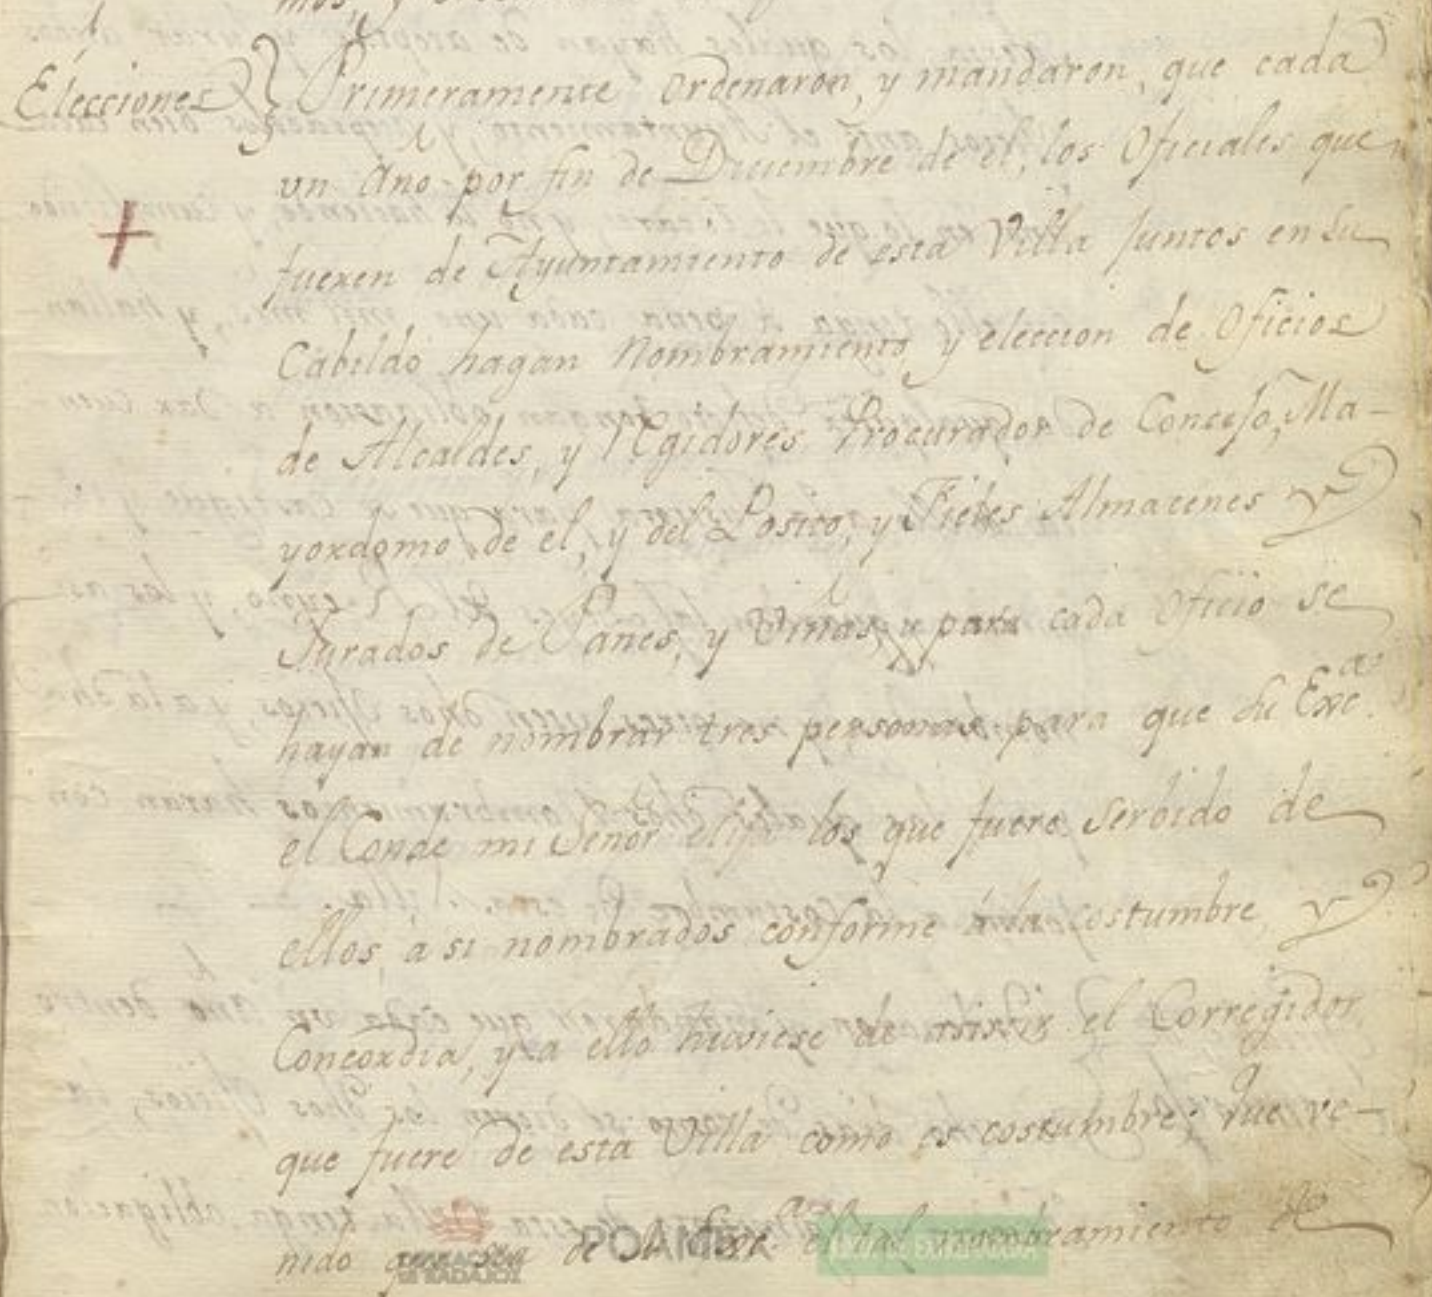 Elecciones
Primeramente ordenaron, y mandaron, que cada
un Año por fin de Diciembre de él, los Oficiales que
fueren de Ayuntamiento de esta Villa Juntos en su
Cabildo hagan Nombramiento y eleccion de Oficios
de Alcaldes, y Regidores Procurador de Concejo, Ma-
yordomo de el, y del Posito, y Fieles Almacenes y
Jurados de Panes, y Viñas, y para cada Oficio se
hayan de nombrar tres personas para que su Exc.ª
el Conde mi Señor elija los que fuere serbido de
ellos, a si nombrados conforme á la costumbre, y
Concordia, y a ello huviese de asistir el Corregidor
que fuere de esta Villa como es costumbre; Que ve-
nido que sea de su Exc.ª el tal nombramiento el
POAMEX
DIPUTACIÓN
DE BADAJOZ